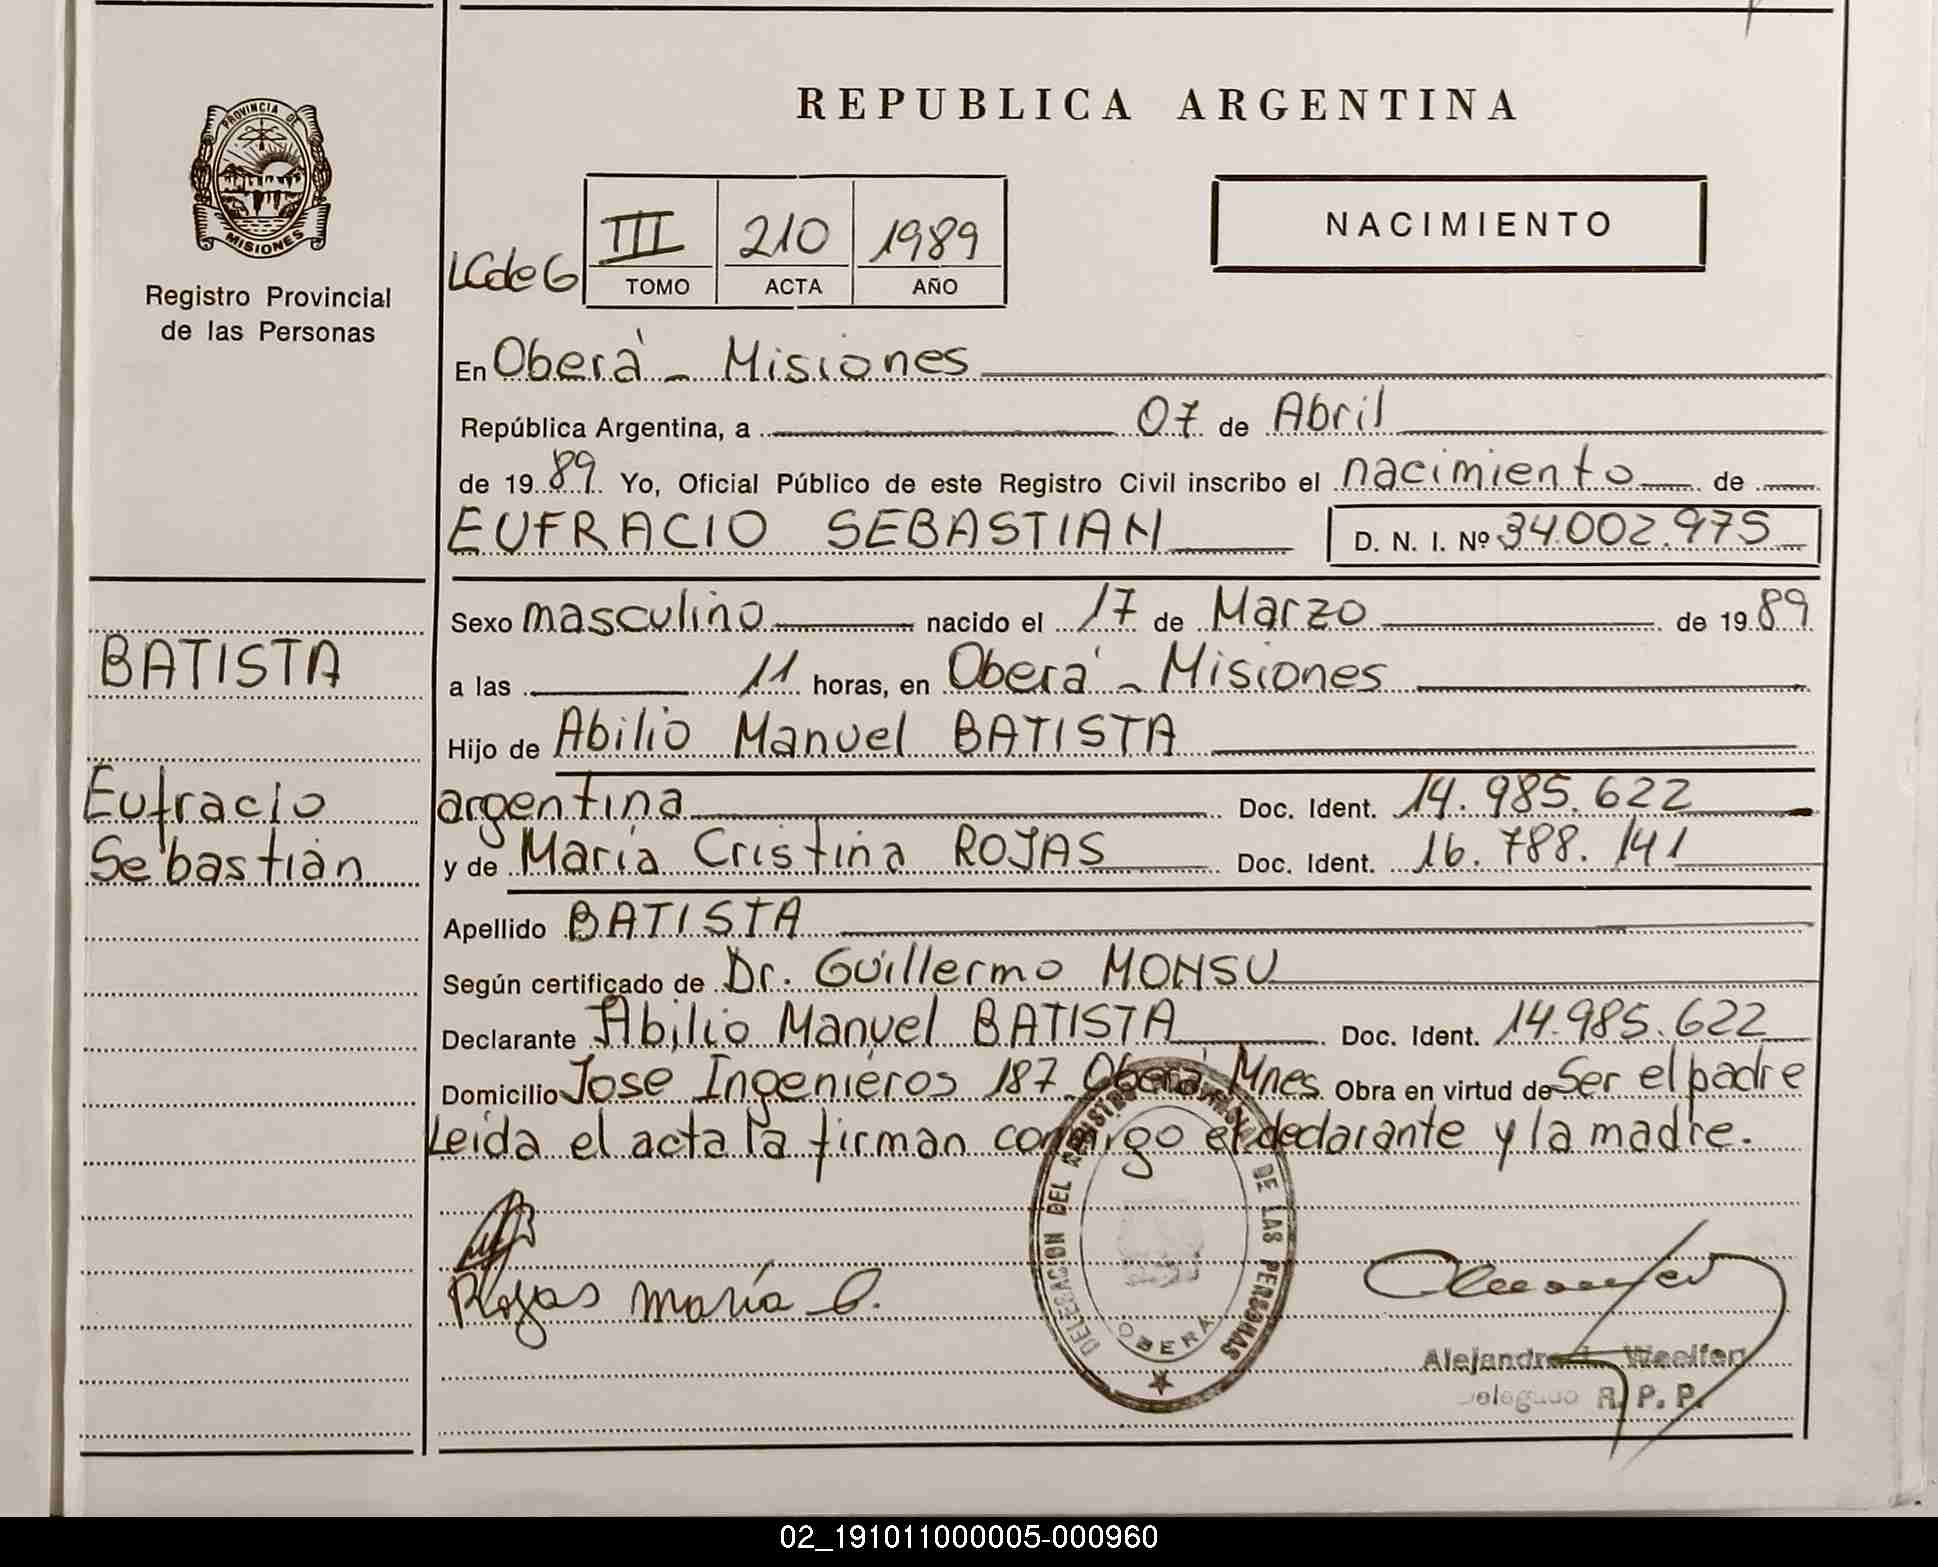 PROVINCIA DE
MISIONES
Registro Provincial
de las Personas
REPUBLICA ARGENTINA
NACIMIENTO
LCdeG III 210 1989
TOMO ACTA AÑO
En Oberá - Misiones
República Argentina, a 07 de Abril
de 19 89 Yo, Oficial Público de este Registro Civil inscribo el nacimiento de
EUFRACIO SEBASTIAN D. N. I. Nº 34.002.975
Sexo masculino nacido el 17 de Marzo de 19 89
a las 11 horas, en Oberá - Misiones
Hijo de Abilio Manuel BATISTA
argentina Doc. Ident. 14.985.622
y de María Cristina ROJAS Doc. Ident. 16.788.141
Apellido BATISTA
Según certificado de Dr. Guillermo MONSU
Declarante Abilio Manuel BATISTA Doc. Ident. 14.985.622
Domicilio Jose Ingenieros 187 Oberá Mnes Obra en virtud de Ser el padre
Leida el acta la firman conmigo el declarante y la madre.
BATISTA
Eufracio
Sebastián
Rojas María C.
DELEGACION DEL REGISTRO PROVINCIAL DE LAS PERSONAS
OBERA
Delegado R. P. P.
02_191011000005-000960